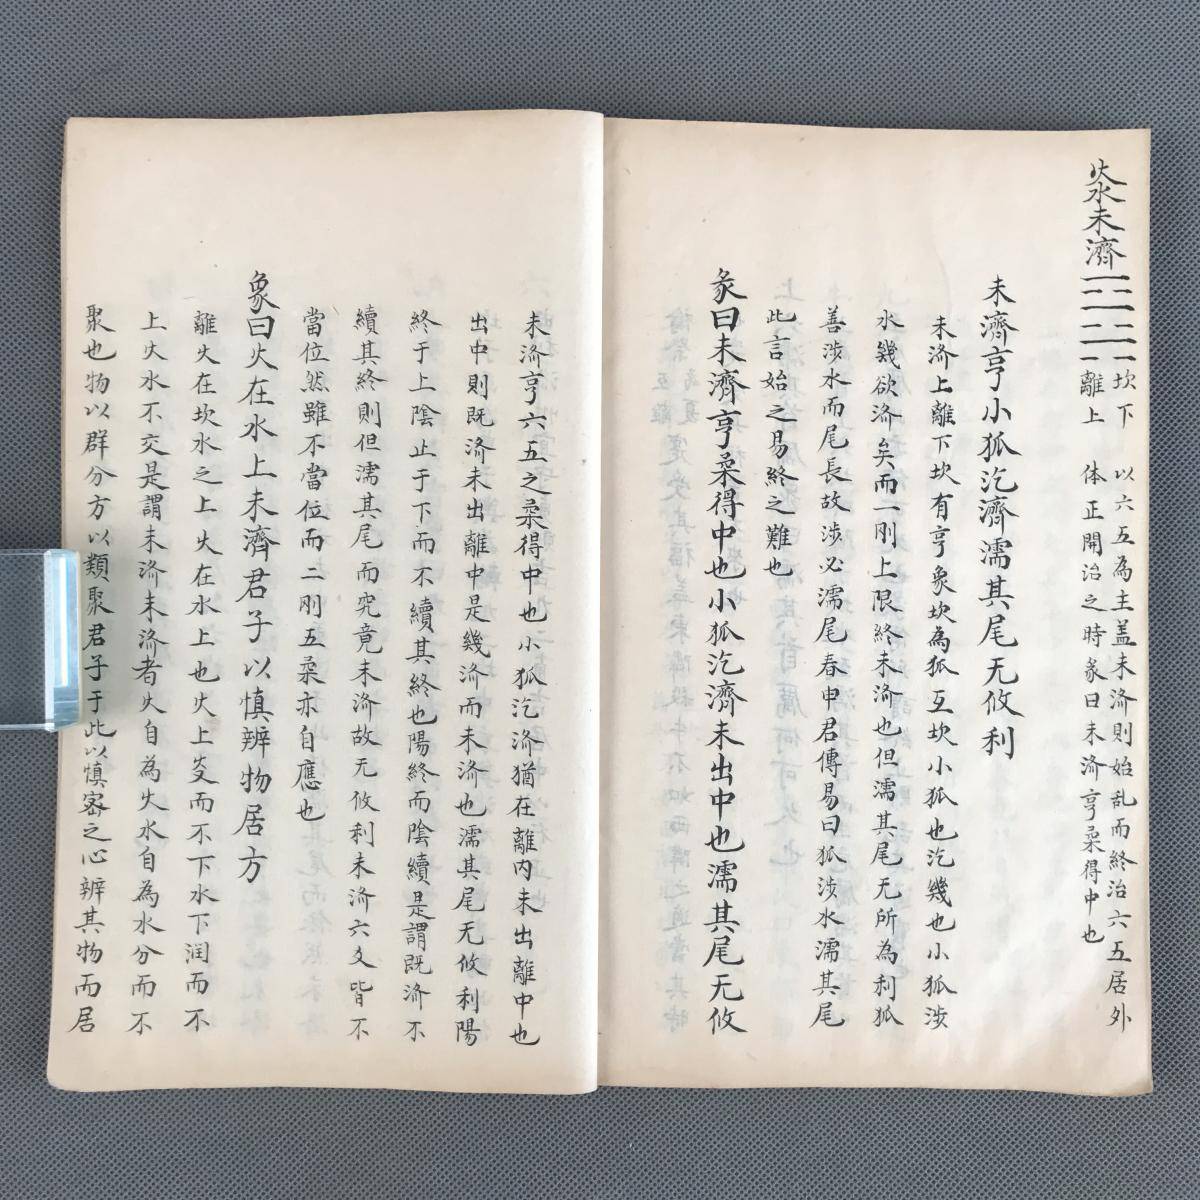 火水未濟 坎下 以六五為主盖未济則始乱而終治六五居外
離上 体正開治之時彖曰未济亨柔得中也
未濟亨小狐汔濟濡其尾无攸利
未济上離下坎有亨象坎為狐互坎小狐也汔幾也小狐涉
水幾欲济矣而一刚上限終未济也但濡其尾无所為利狐
善涉水而尾長故涉必濡尾春申君傳易曰狐涉水濡其尾
此言始之易終之難也
彖曰未濟亨柔得中也小狐汔濟未出中也濡其尾无攸
未济亨六五之柔得中也小狐汔济猶在離内未出離中也
出中則既济未出離中是幾济而未济也濡其尾无攸利陽
終于上陰止于下而不續其終也陽終而陰續是謂既济不
續其終則但濡其尾而究竟未济故无攸利未济六爻皆不
當位然雖不當位而二刚五柔亦自應也
象曰火在水上未濟君子以慎辨物居方
離火在坎水之上火在水上也火上炎而不下水下润而不
上火水不交是謂未济未济者火自為火水自為水分而不
聚也物以群分方以類聚君子于此以慎密之心辨其物而居